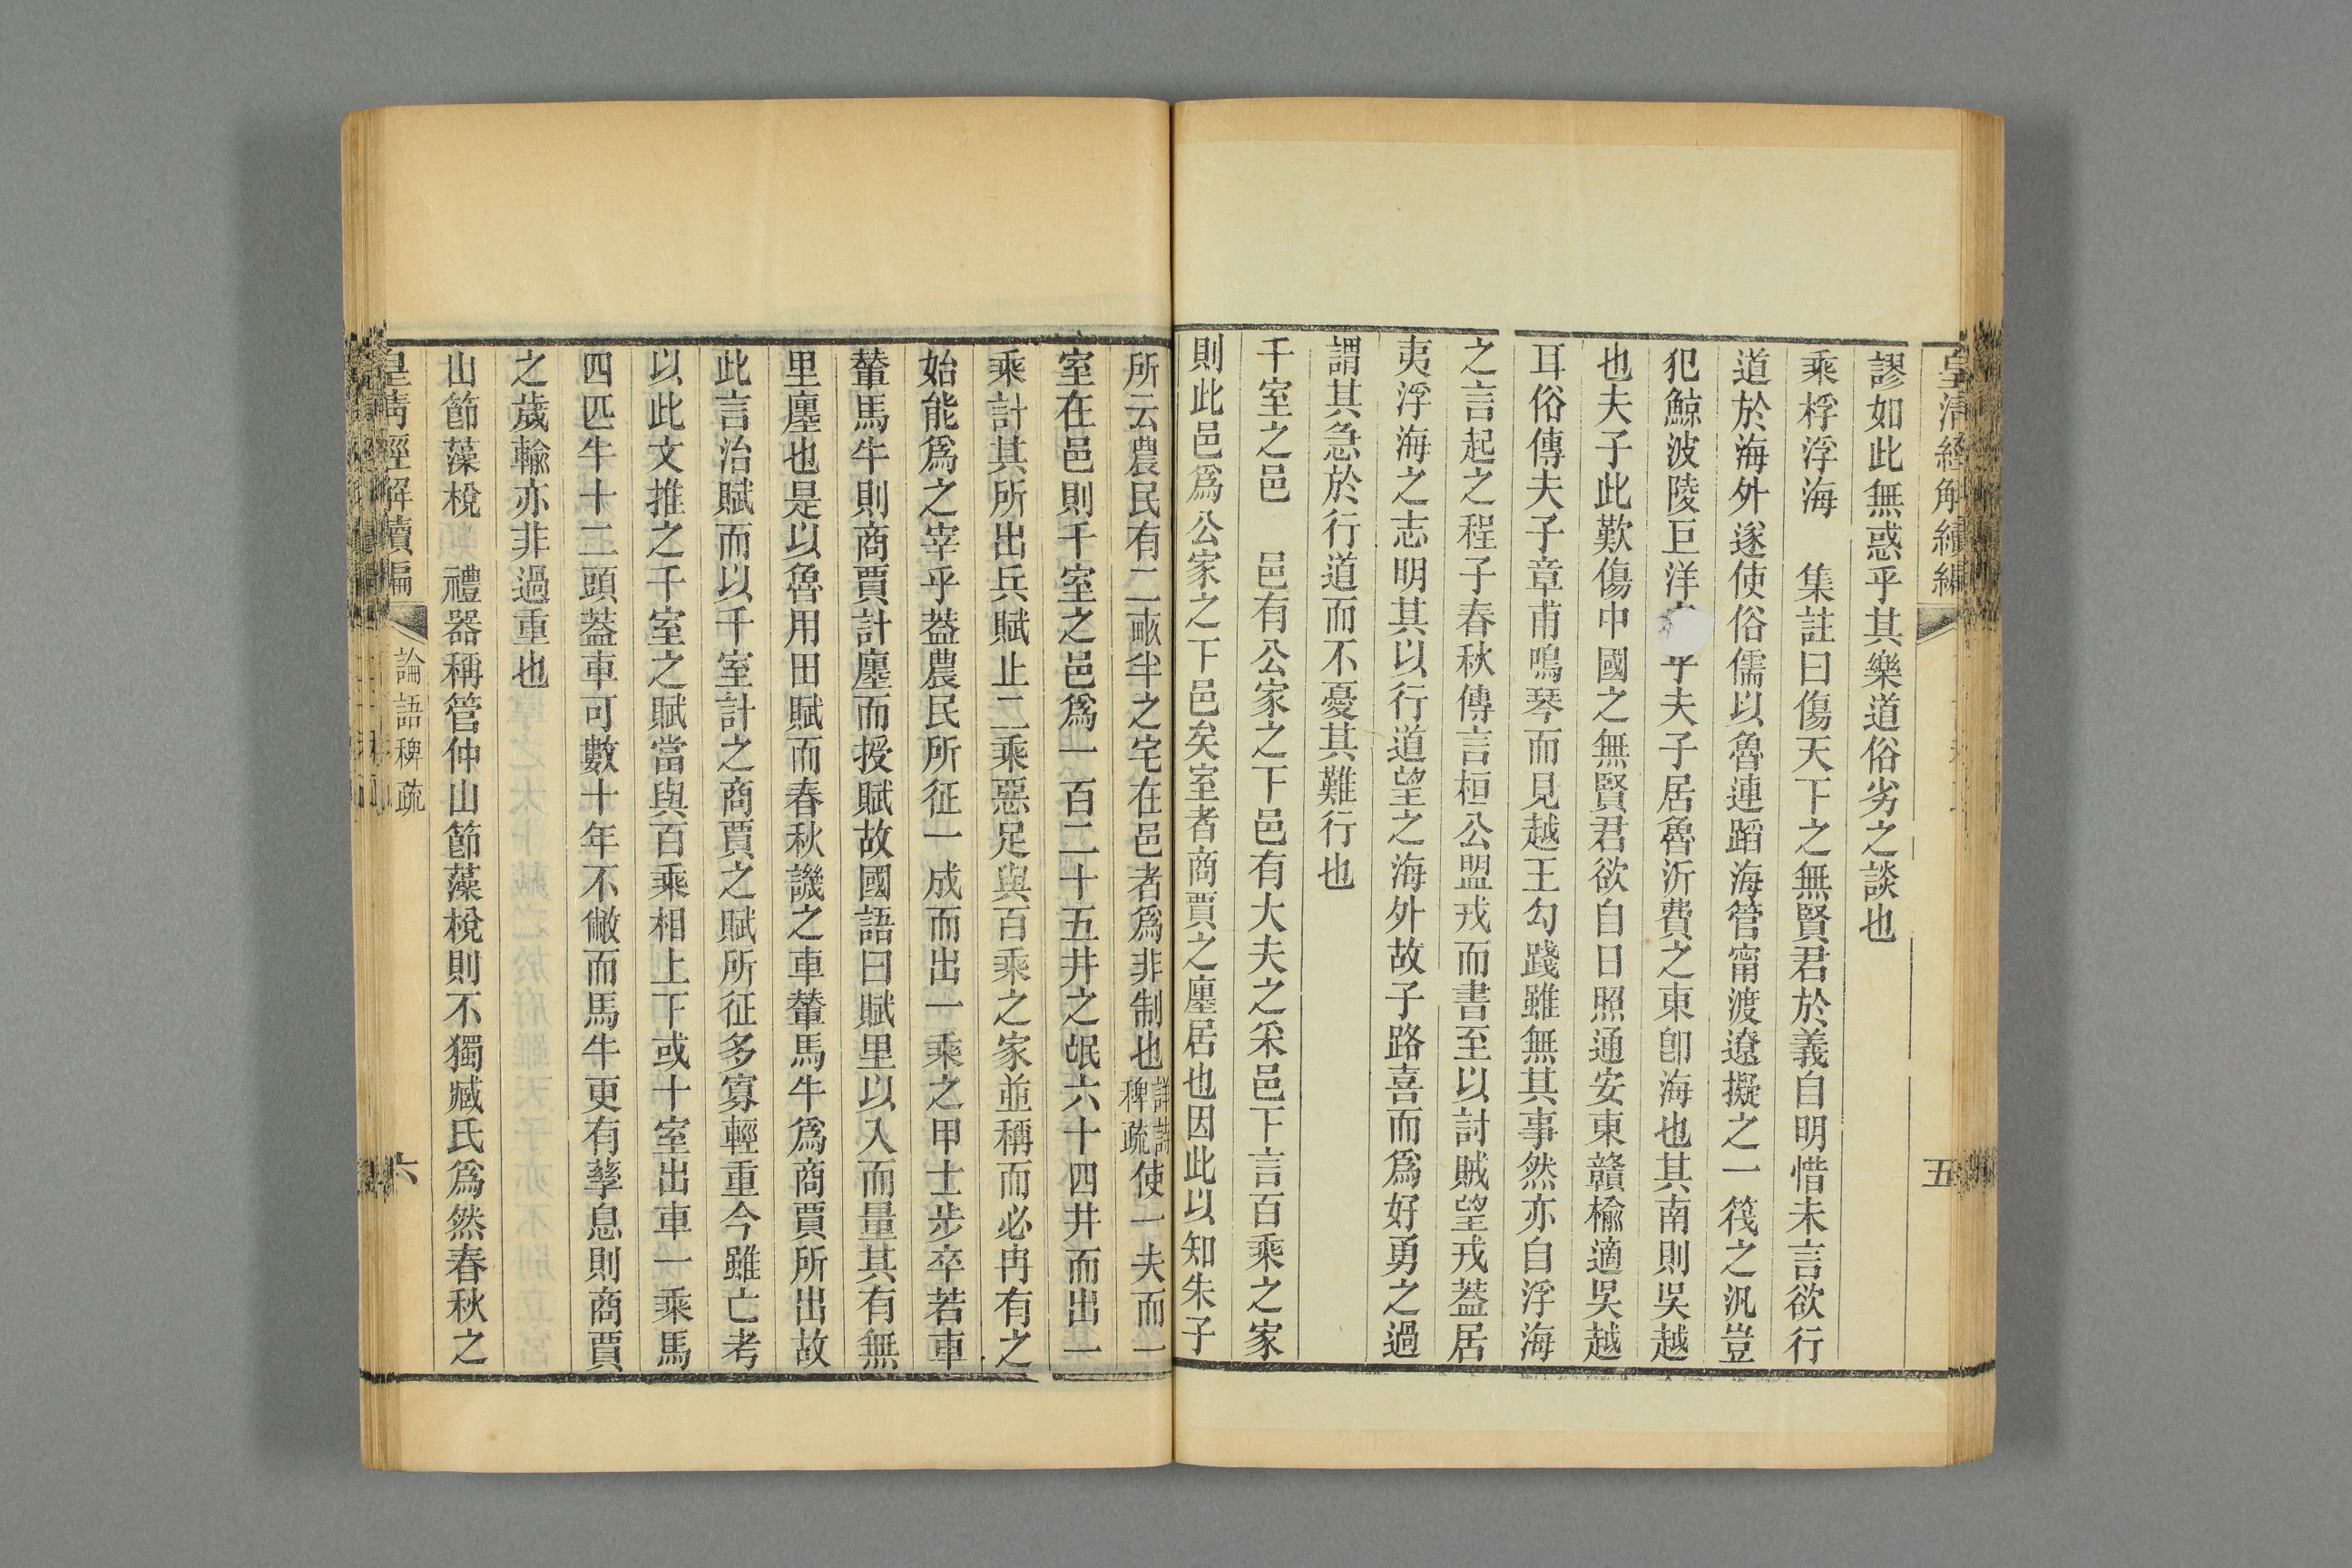 皇清經解續編
五
謬如此無惑乎其樂道俗劣之談也
乘桴浮海　集註曰傷天下之無賢君於義自明惜未言欲行
道於海外遂使俗儒以魯連蹈海管甯渡遼擬之一筏之汎豈
犯鯨波陵巨洋乎夫子居魯沂費之東卽海也其南則吳越
也夫子此歎傷中國之無賢君欲自日照通安東贛榆適吳越
耳俗傳夫子章甫鳴琴而見越王勾踐雖無其事然亦自浮海
之言起之程子春秋傳言桓公盟戎而書至以討賊望戎葢居
夷浮海之志明其以行道望之海外故子路喜而爲好勇之過
謂其急於行道而不憂其難行也
千室之邑　邑有公家之下邑有大夫之采邑下言百乘之家
則此邑爲公家之下邑矣室者商賈之廛居也因此以知朱子
所云農民有二畝半之宅在邑者爲非制也詳詩稗疏使一夫而一
室在邑則千室之邑爲一百二十五井之氓六十四井而出一
乘計其所出兵賦止二乘惡足與百乘之家並稱而必冉有之
始能爲之宰乎葢農民所征一成而出一乘之甲士步卒若車
輦馬牛則商賈計廛而授賦故國語曰賦里以入而量其有無
里廛也是以魯用田賦而春秋譏之車輦馬牛爲商賈所出故
此言治賦而以千室計之商賈之賦所征多寡輕重今雖亡考
以此文推之千室之賦當與百乘相上下或十室出車一乘馬
四匹牛十二頭葢車可數十年不敝而馬牛更有孳息則商賈
之歲輸亦非過重也
山節藻梲　禮器稱管仲山節藻梲則不獨臧氏爲然春秋之
皇清經解續編
論語稗疏
六